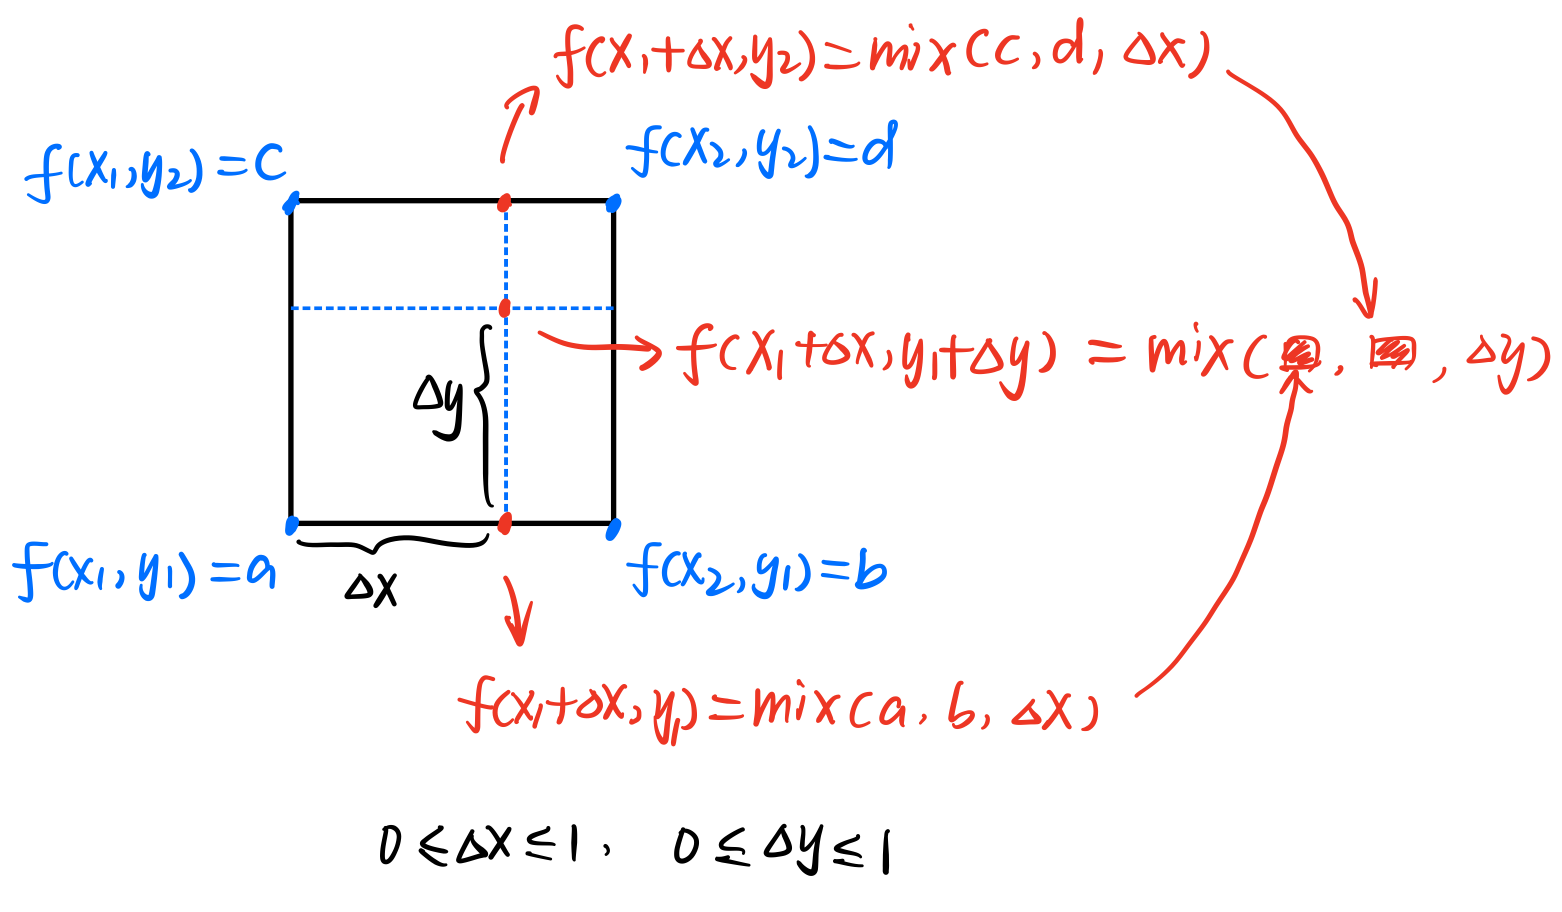 f(x₁+Δx,y₂)=mix(c,d,Δx)
f(x₁,y₂)=c
f(x₂,y₂)=d
f(x₁+Δx,y₁+Δy)=mix( , ,Δy)
Δy
f(x₁,y₁)=a
Δx
f(x₂,y₁)=b
f(x₁+Δx,y₁)=mix(a,b,Δx)
0≤Δx≤1, 0≤Δy≤1